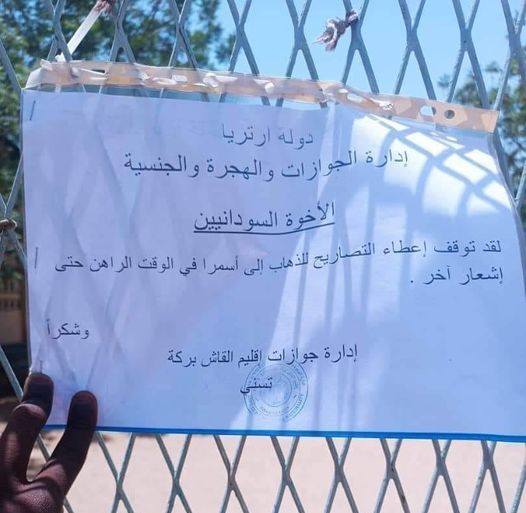 دولة ارتريا
إدارة الجوازات والهجرة والجنسية
الأخوة السودانيين
لقد توقف إعطاء التصاريح للذهاب إلى أسمرا في الوقت الراهن حتى
إشعار آخر .
وشكراً
إدارة جوازات إقليم القاش بركة
تسني